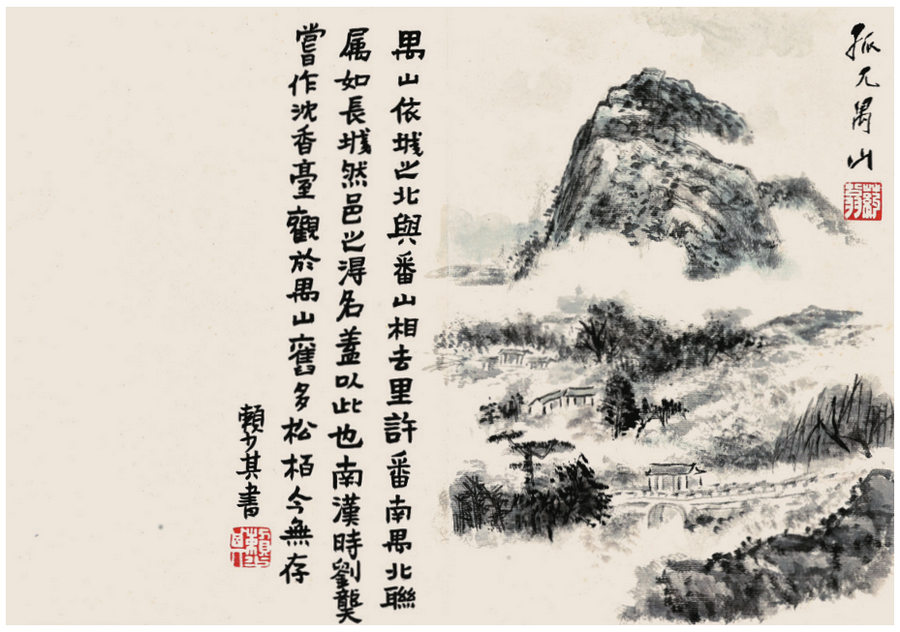 孤兀禺山
禺山依城之北與番山相去里許番南禺北聯
属如長城然邑之淂名蓋以此也南漢時劉龑
嘗作沈香臺觀於禺山舊多松栢今無存
賴少其書